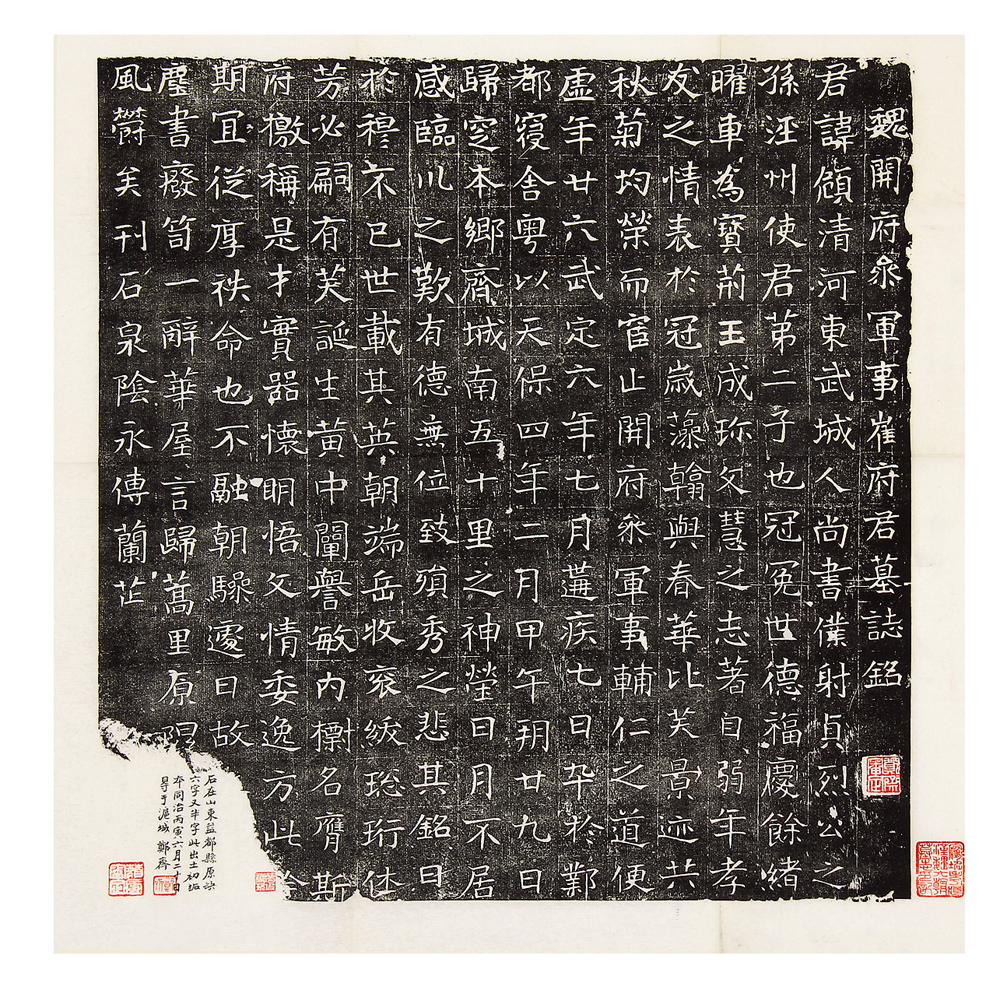 魏開府叅軍事崔府君墓誌銘
君諱頠清河東武城人尚書僕射貞烈公之
孫涇州使君第二子也冠冕世德福慶餘緒
曜車為寶荊王成珎父慧之志著自弱年孝
友之情表於冠歲藻翰與春華比芙景迹共
秋菊均榮而宦止開府叅軍事輔仁之道便
虛年廿六武定六年七月遘疾七日卒於鄴
都寢舍粤以天保四年二月甲午朔廿九日
歸窆本鄉齊城南五十里之神塋日月不居
感臨川之歎有德無位致殞秀之悲其銘曰
於穆不已世載其英朝端岳牧衮紱琁珩休
芳必嗣有芙誕生黄中闡譽敏內摽名膺斯
府檄稱是才實器懷明悟文情委逸方此
期冝從厚袟命也不融朝驂遽日故
塵書癈笥一辭華屋言歸蒿里原
風欝矣刊石泉陰永傳蘭茫
石在山東益都縣原缺
六字又半字此出土初拓
本同治丙寅六月二十日
㝵于滬城 鄭齋